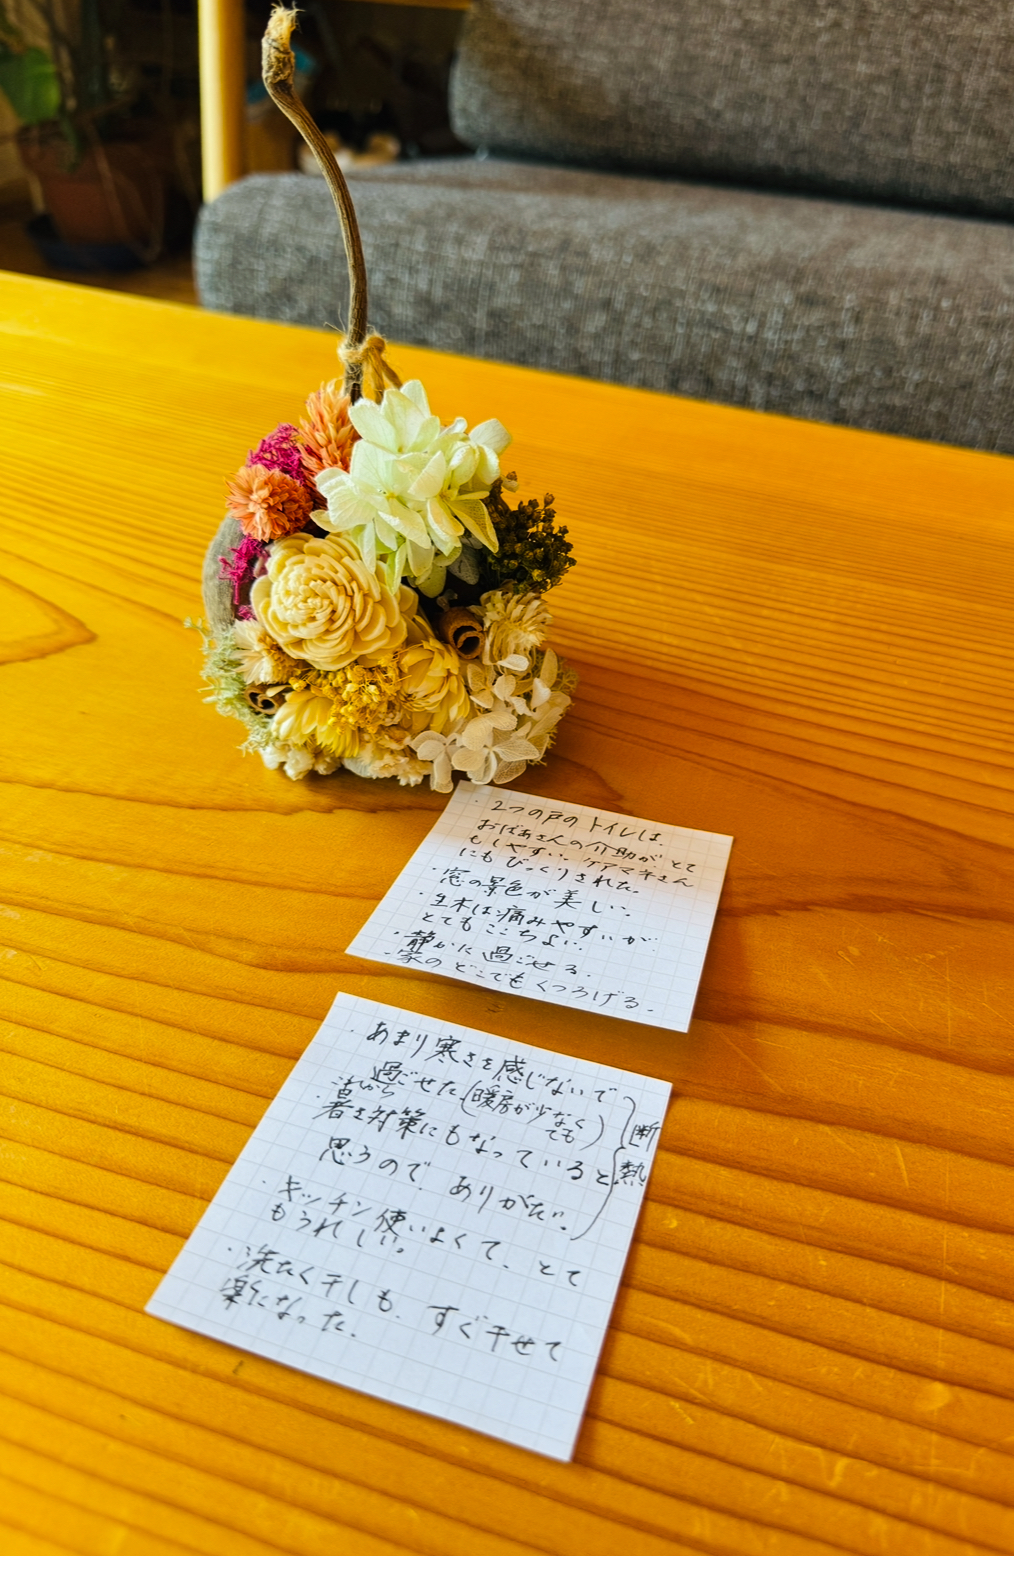 ・2つの戸のトイレは、
おばあさんの介助がとて
もしやすい。ケアマネさん
にもびっくりされた。
・窓の景色が美しい。
・生木は痛みやすいが
とてもここちよい。
・静かに過ごせる。
・家のどこでもくつろげる。
・あまり寒さを感じないで
過ごせた(暖房が少なく
ても)
断熱
・暑さ対策にもなっていると
思うので、ありがたい。
・キッチン使いよくて、とて
もうれしい。
・洗たく干しも、すぐ干せて
楽になった。